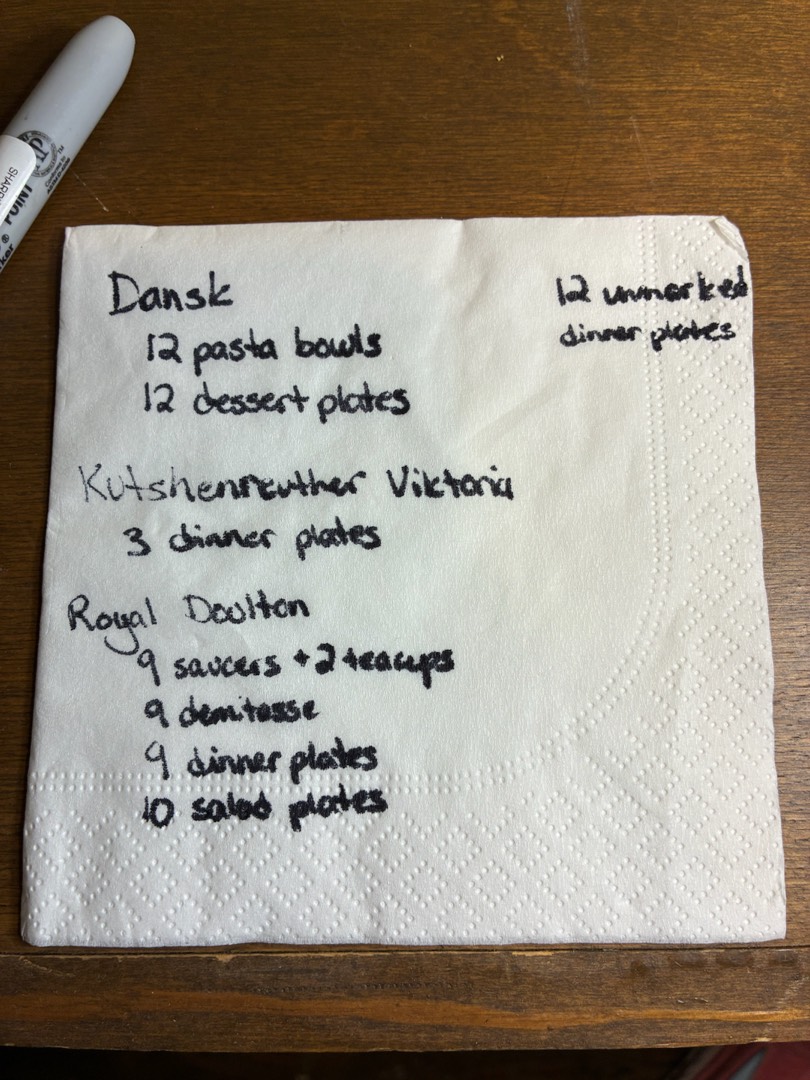 Dansk
12 pasta bowls
12 dessert plates
12 unmarked
dinner plates
Kutshenreuther Viktoria
3 dinner plates
Royal Doulton
9 saucers + 2 teacups
9 demitasse
9 dinner plates
10 salad plates
SHARPI
POINT